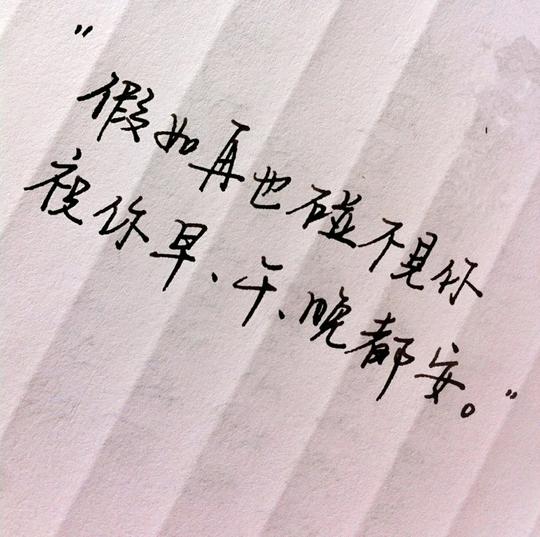 "假如再也碰不見你
祝你早、午、晚都安。"